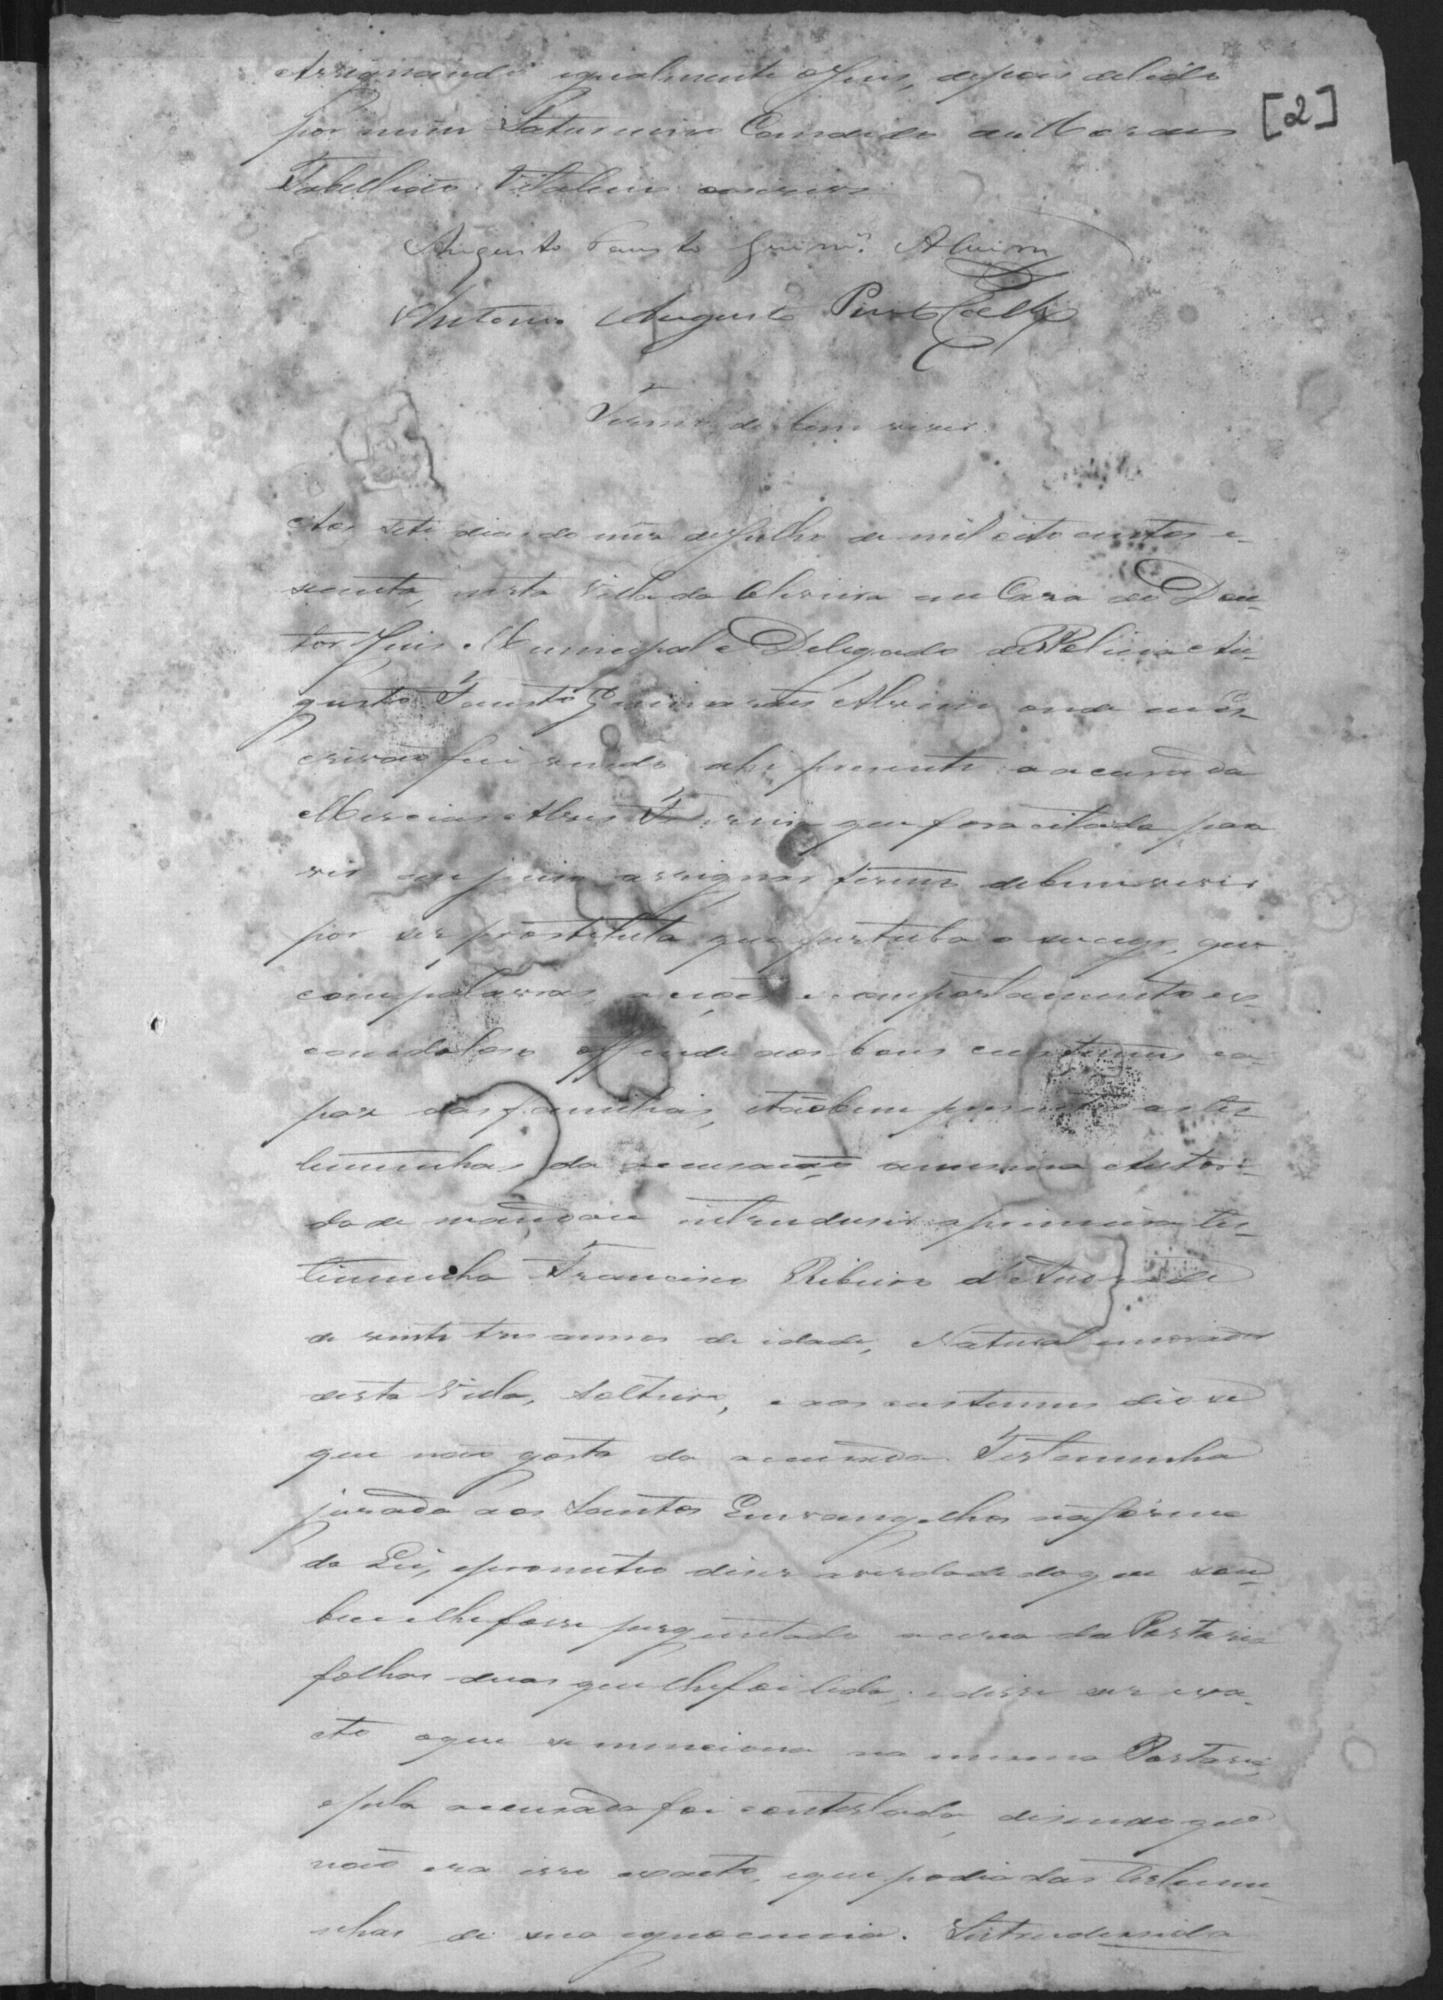 Assignando igualmente o Juis, depois de lido
[2]
por mim Saturnino Candido de Moraes
Tabellião Vitalicio escrevi
Augusto Fausto Guimes. Alvim
Antonio Augusto
Termo de bem viver.
Aos sete dias do mez de Julho de mil oito centos e
secenta, nesta Villa da Oliveira em Caza do Dou-
tor Juis Municipal e Delegado de Policia Au-
gusto Fausto Guimarães Alvim onde eu Es-
crivão fui vindo ahi presente a accusada
Alves que fora citada para
vir em juiso assignar termo de bem viver
por ser prostituta que perturba o socego, que
com palavras, acções e comportamento es-
candaloso offende aos bons custumes e a
paz das familias, e tãobem presente as tes-
temunhas da accusação a mesma Autori-
dade mandou introdusir a primeira tes-
timunha Francisco Ribeiro d'Andrade
de vinte tres annos de idade, Natural e morador
desta Villa, Solteiro, e aos custumes disse
que não gosta da accusada. Testemunha
jurada aos Santos Envangelhos na forma
da Lei, e prometeo diser a verdade do que sou-
besse e lhe fosse perguntado acerca da Portaria
folhas duas que lhe foi lida, e disse ser exa-
cto o que se menciona na mesma Portaria,
e pela accusada foi contestada, disendo que
não era isso exacto, e que podia dar testemu-
nhas de sua ignocencia. Introdusida